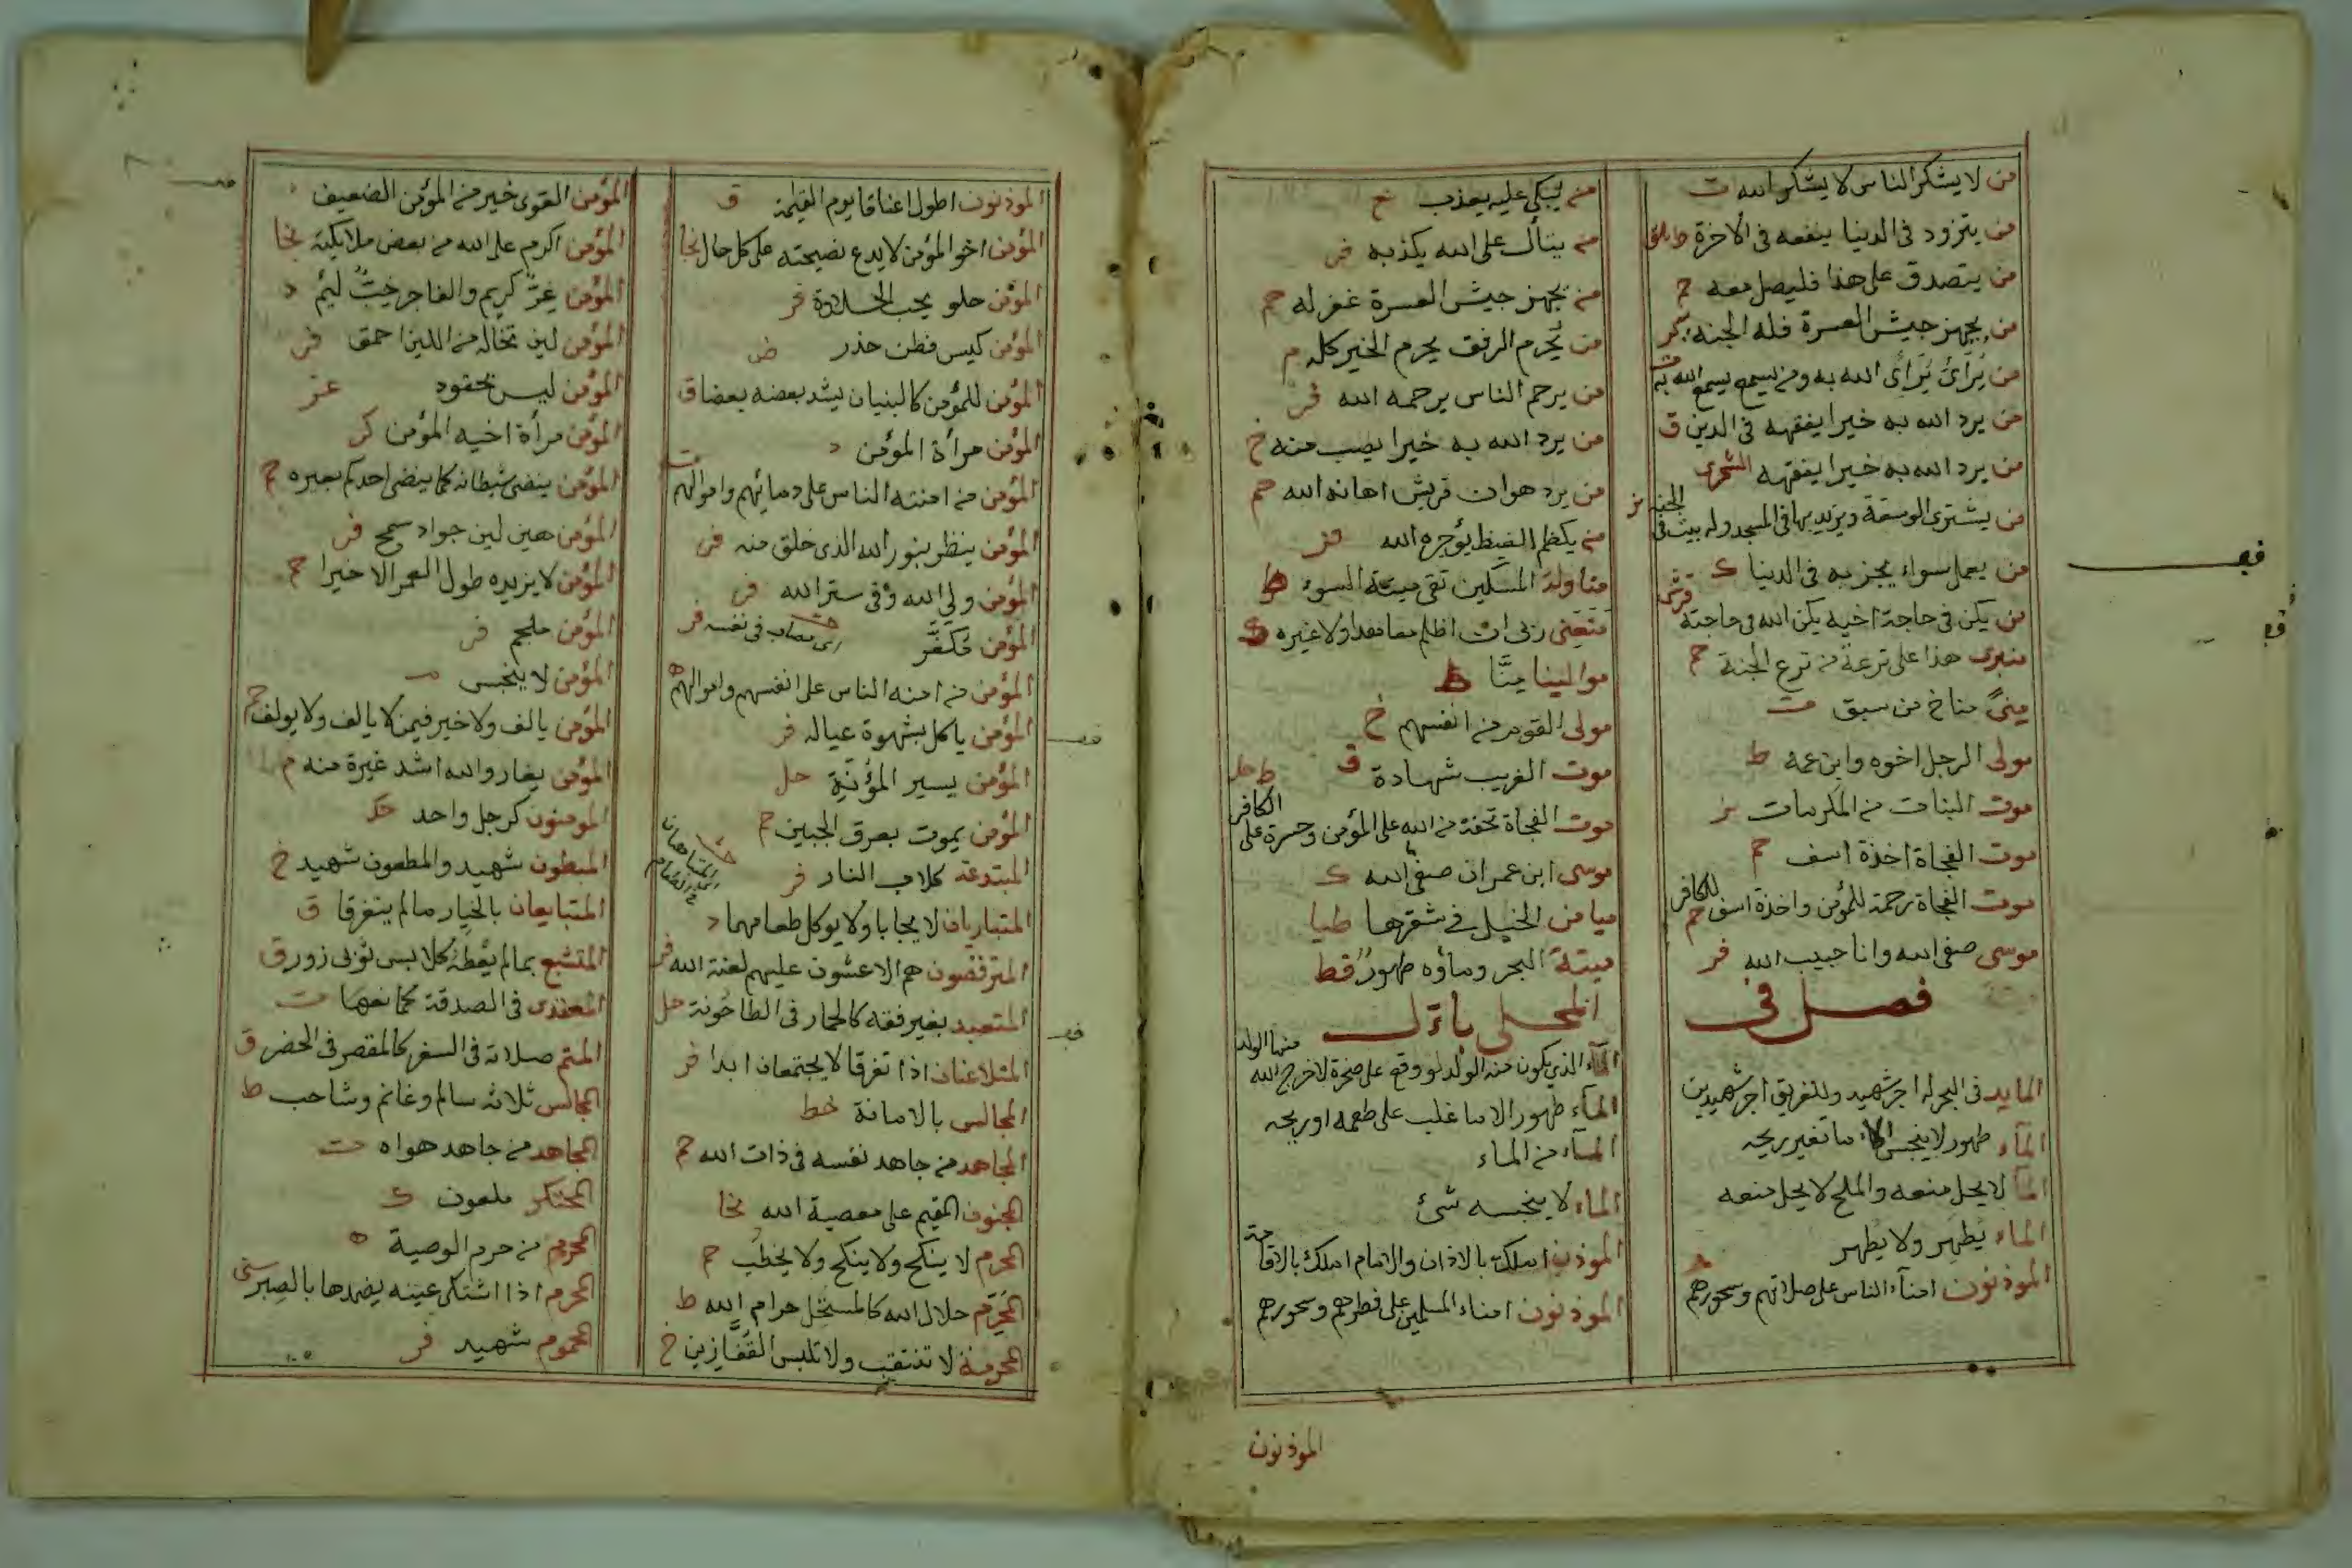 من لا يشكر الناس لا يشكر الله ت
من يتزود فى الدنيا ينفعه فى الاخرة
من يتصدق على هذا فليصل معه حم
من يجهز جيش العسرة فله الجنة
من يُرَائى يُرَائى الله به ومن يسمع يسمع الله به
من يرد الله به خيرا يفقهه فى الدين ق
من يرد الله به خيرا يفقهه السجزى
من يشترى ويزيد بها فى المسجد وله بيت فى الجنة
من يعمل سواء يجز به فى الدنيا ك
من يكن فى حاجة اخيه يكن الله فى حاجته
منبرى هذا على ترعة من ترع الجنة حم
مِنىً مناخ من سبق ت
مولى الرجل اخوه وابن عمه ط
موت البنات من المكرمات بز
موت الفجاة اخذة اسف حم
موت الفجاة رحمة للمؤمن واخذة اسف للكافر حم
موسى صفى الله وانا حبيب الله فر
فصل فى
المايد فى البحر له اجر شهيد وللغريق اجر شهيدين
المآء طهور لا ينجس الا ما تغير ريحه
المآ لا يحل منعه والملح لا يحل منعه
الماء يُطهِر ولا يُطهر
الموذنون امنآء الناس على صلاتهم وسحورهم
من يبكى عليه يعذب خ
من يتأل على الله يكذبه
من يجهز جيش العسرة غفر له حم
من يُحرم الرفق يحرم الخير كله م
من يرحم الناس يرحمه الله
من يرد الله به خيرا يصب منه خ
من يرد هوان قريش اهانه الله حم
من يكظم الغيظ يؤجره الله
مناولة المسكين تقى ميتة السوء ط
منعنى ربى ان اظلم معاهدا ولا غيره ك
موالينا مِنَّا ط
مولى القوم من انفسهم خ
موت الغريب شهادة ق
موت الفجاة تحفة من الله على المؤمن وحسرة على الكافر
موسى ابن عمران صفى الله ك
ميامن الخيل فى شقرها طيا
ميتة البحر وماؤه طهورٌ قط
المحلى بال
المآء الذى يكون منه الولد لو وقع على صخرة لاخرج الله منها الولد
المآء طهور الا ما غلب على طعمه او ريحه
المآء من الماء
الماء لا ينجسه شئ
الموذن املك بالاذان والامام املك بالاقامة
الموذنون امناء المسلمين على فطرهم وسحورهم
الموذنون
الموذنون اطول اعناقا يوم القيمة ق
المؤمن اخو المؤمن لا يدع نصيحته على كل حال نجا
المؤمن حلو يحب الحلاوة فر
المؤمن كيس فطن حذر
المؤمن للمؤمن كالبنيان يشد بعضه بعضا ق
المؤمن مرأة المؤمن د
المؤمن من امنته الناس على دمائهم واموالهم ت
المؤمن ينظر بنور الله الذى خلق منه فر
المؤمن ولي الله وفى ستر الله فر
المؤمن مُكَفَّر فر
اى مصاب فى نفسه
المؤمن من امنه الناس على انفسهم واموالهم ه
المؤمن ياكل بشهوة عياله فر
المؤمن يسير المؤنة حل
المؤمن يموت بعرق الجبين حم
المبتدعة كلاب النار فر
المتباريان لا يجابا ولا يوكل طعامهما د
المترفضون هم الاعشون عليهم لعنة الله فر
المتعبد بغير فقه كالحمار فى الطاحونة حل
المتلاعنان اذا تفرقا لا يجتمعان ابدا فر
المجالس بالامانة خط
المجاهد من جاهد نفسه فى ذات الله حم
المجنون المقيم على معصية الله نجا
المحرم لا ينكح ولا ينكح ولا يخطب حم
المحرّم حلال الله كالمستحل حرام الله ط
المحرمة لا تنتقب ولا تلبس القفازين خ
المؤمن القوى خير من المؤمن الضعيف
المؤمن اكرم على الله من بعض ملايكته نجا
المؤمن غِرٌّ كريم والفاجر خَبٌّ لئيم د
المؤمن لين تخاله من اللين احمق فر
المؤمن ليس بحقود
المؤمن مرأة اخيه المؤمن كر
المؤمن ينضى شيطانه كما ينضى احدكم بعيره حم
المؤمن هين لين جواد سمح فر
المؤمن لا يزيده طول العمر الا خيرا حم
المؤمن ملجم فر
المؤمن لا ينجس
المؤمن يالف ولا خير فيمن لا يالف ولا يولف حم
المؤمن يغار والله اشد غيرة منه م
المومنون كرجل واحد
المبطون شهيد والمطعون شهيد خ
المتبايعان بالخيار ما لم يتفرقا ق
المتشبع بما لم يُعْطَ كلابس ثوبى زور ق
المعتدى فى الصدقة كمانعها ت
المتم صلاته فى السفر كالمقصر فى الحضر ق
المجالس ثلاثة سالم وغانم وشاحب ط
المجاهد من جاهد هواه ت
المحتكر ملعون ك
المحروم من حرم الوصية ه
المحرم اذا اشتكى عينه يضمدها بالصبر
المحموم شهيد فر